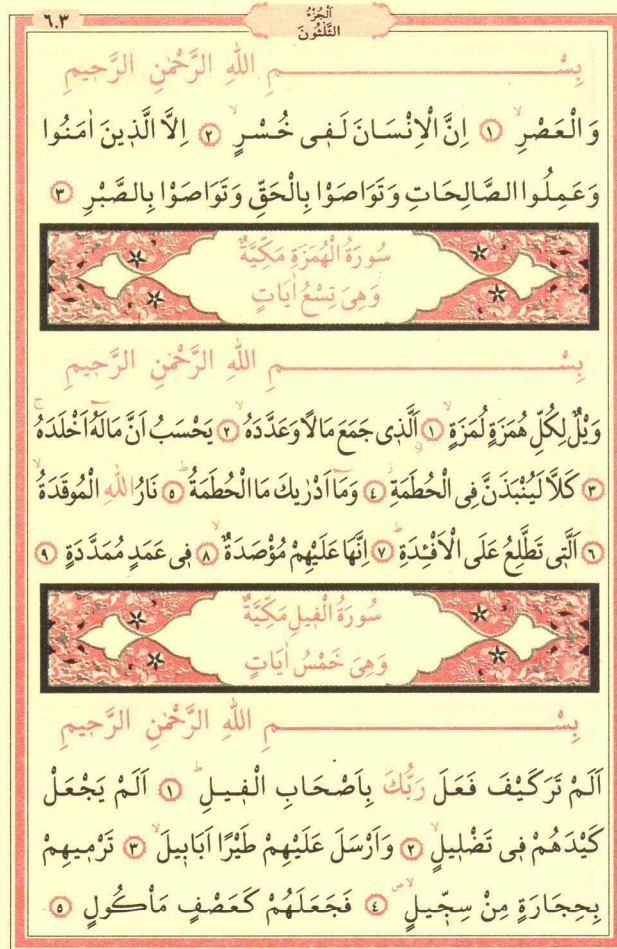 ٦٠٣
اَلْجُزْءُ
الثَّلٰثُونَ
بِسْــــــــــــمِ اللّٰهِ الرَّحْمٰنِ الرَّحٖيمِ
وَالْعَصْرِۙ ١ اِنَّ الْاِنْسَانَ لَفٖى خُسْرٍۙ ٢ اِلَّا الَّذٖينَ اٰمَنُوا
وَعَمِلُوا الصَّالِحَاتِ وَتَوَاصَوْا بِالْحَقِّ وَتَوَاصَوْا بِالصَّبْرِ ٣
سُورَةُ الْهُمَزَةِ مَكِّيَّةٌ
وَهِىَ تِسْعُ اٰيَاتٍ
بِسْــــــــــــمِ اللّٰهِ الرَّحْمٰنِ الرَّحٖيمِ
وَيْلٌ لِكُلِّ هُمَزَةٍ لُمَزَةٍۙ ١ اَلَّذٖى جَمَعَ مَالًا وَعَدَّدَهُۙ ٢ يَحْسَبُ اَنَّ مَالَهُٓ اَخْلَدَهُۚ
٣ كَلَّا لَيُنْبَذَنَّ فِى الْحُطَمَةِۘ ٤ وَمَٓا اَدْرٰيكَ مَا الْحُطَمَةُؕ ٥ نَارُ اللّٰهِ الْمُوقَدَةُۙ
٦ اَلَّتٖى تَطَّلِعُ عَلَى الْاَفْـِٔدَةِؕ ٧ اِنَّهَا عَلَيْهِمْ مُؤْصَدَةٌۙ ٨ فٖى عَمَدٍ مُمَدَّدَةٍ ٩
سُورَةُ الْفٖيلِ مَكِّيَّةٌ
وَهِىَ خَمْسُ اٰيَاتٍ
بِسْــــــــــــمِ اللّٰهِ الرَّحْمٰنِ الرَّحٖيمِ
اَلَمْ تَرَ كَيْفَ فَعَلَ رَبُّكَ بِاَصْحَابِ الْفٖيلِؕ ١ اَلَمْ يَجْعَلْ
كَيْدَهُمْ فٖى تَضْلٖيلٍۙ ٢ وَاَرْسَلَ عَلَيْهِمْ طَيْرًا اَبَابٖيلَۙ ٣ تَرْمٖيهِمْ
بِحِجَارَةٍ مِنْ سِجّٖيلٍۙ ٤ فَجَعَلَهُمْ كَعَصْفٍ مَاْكُولٍ ٥